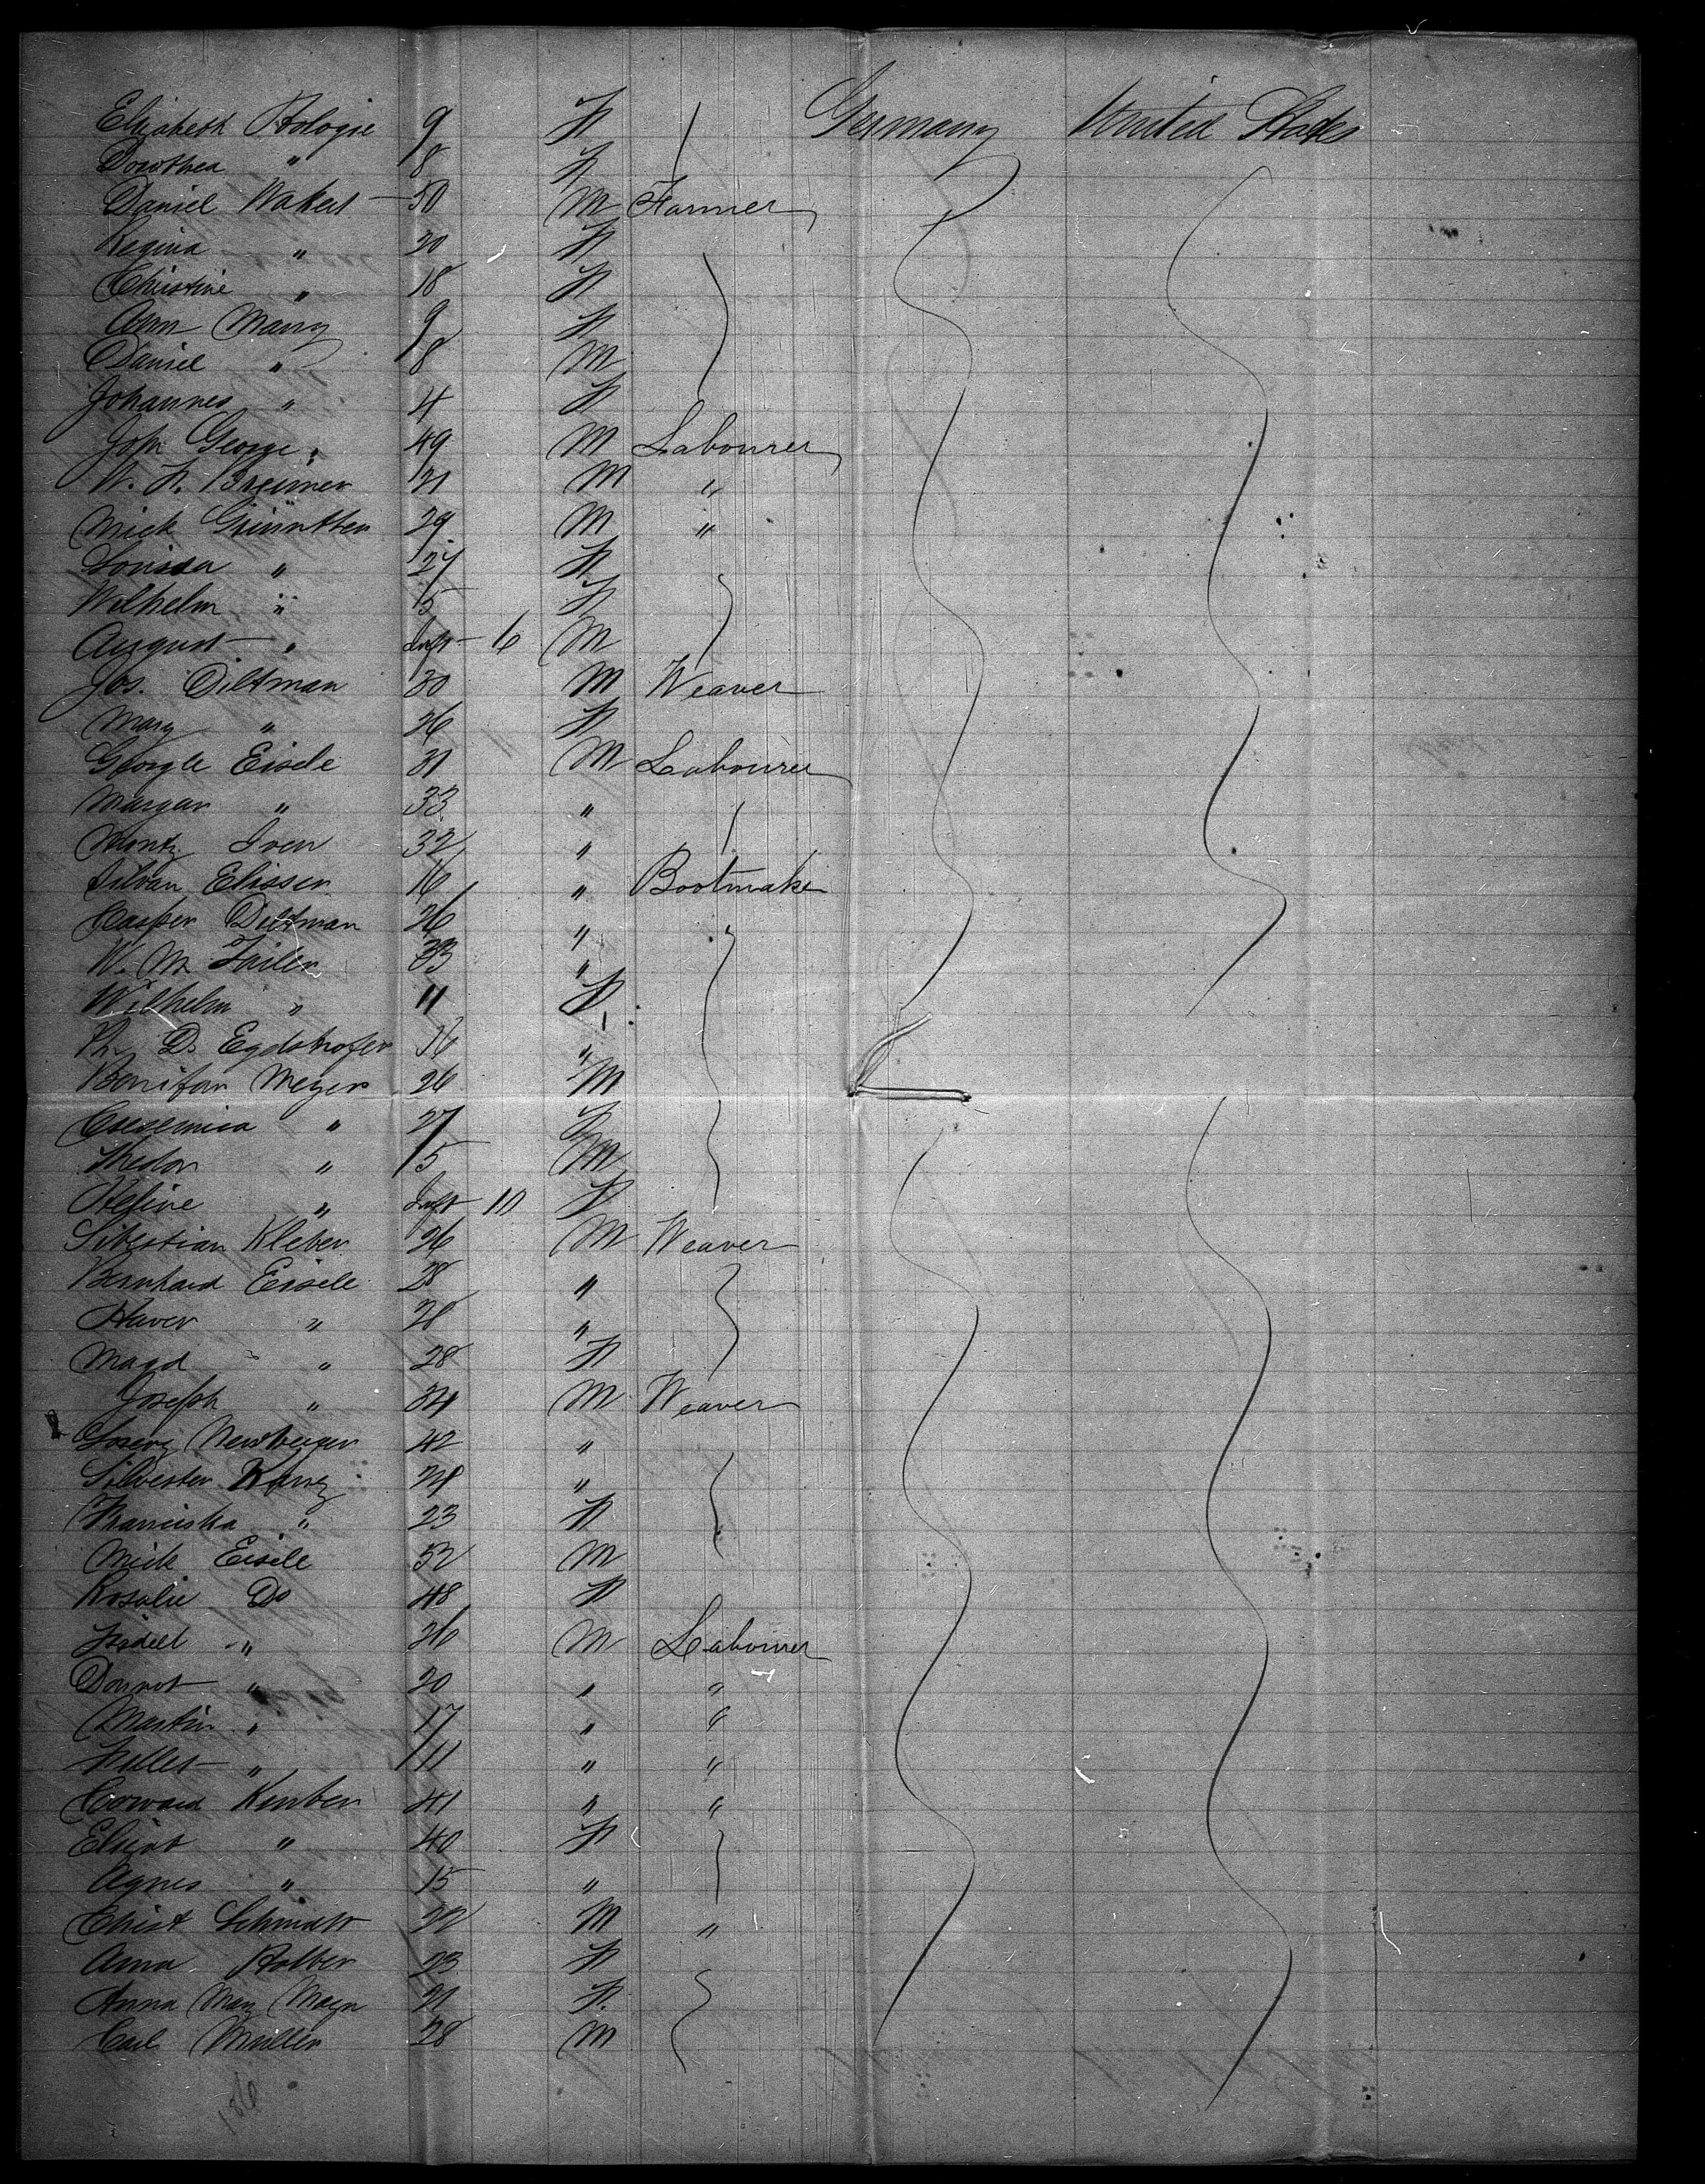 Elizabeth Hologie 9 F Germany United States
Dorothea " 8 F
Daniel Wakert 50 M Farmer
Regina " 20 F
Christine " 18 F
Ann Mary 9 F
Daniel " 8 M
Johannes " 4 F
John George " 49 M Labourer
W. F. Breimer 21 M "
Mick Grünntter 29 M "
Louisa " 27 F
Wilhelm " 5 F
August " Inft 6 M
Jos. Diltman 30 M Weaver
Mary " 26 F
George Eisele 31 M Labourer
Margar " 33 "
Iven 32 "
Silvan Elisser 16 " Bootmaker
Casper Diltman 26 "
W. M. Failer 33 "
Wilhelm " 11 F
D. Egdshofer 16 "
Bonifan Meyer 26 M
" 27 F
Thedor " 5 M
Heline " Inft 10 F
Sibestian Kleber 26 M Weaver
Bernhard Eisele 28 "
Xaver " 28 "
Magd " 28 F
Joseph " 34 M Weaver
Newberger 42 "
Silvester Kunz 28 "
Franciska " 23 F
Mick Eisele 52 M
Rosalie Do 48 F
Fidell " 26 M Labourer
Donnot " 20 " "
Martin " 17 " "
" 11 " "
Conrad Kimber 41 " "
" 40 F
Agnes " 15 "
Christ Schmidt 22 M "
Anna Holber 23 F
Anna Mary Mayn 21 F
Carl Muller 28 M
186